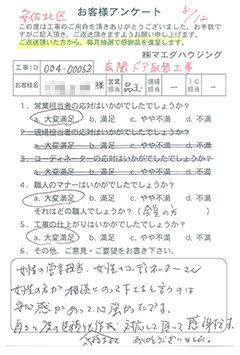 安佐北区
お客様アンケート
8/12
この度は工事のご用命を頂きありがとうございました。お手数で
すがご記入頂き、ご返送頂きますようお願い申し上げます。
ご返送頂いた方から、毎月抽選で感謝品を進呈します。
㈱マエダハウジング
工事ID 004-00052 玄関ドア取替工事
営業担当 現場担当 ー IC担当 ー
1. 営業担当者の応対はいかがでしたでしょうか?
a. 大変満足 b. 満足 c. やや不満 d. 不満
2. 現場担当者の応対はいかがでしたでしょうか?
a. 大変満足 b. 満足 c. やや不満 d. 不満
3. コーディネーターの応対はいかがでしたでしょうか?
a. 大変満足 b. 満足 c. やや不満 d. 不満
4. 職人のマナーはいかがでしたでしょうか?
a. 大変満足 b. 満足 c. やや不満 d. 不満
それはどの職人でしょうか?(全員の方)
5. 工事の仕上がりはいかがでしたでしょうか?
a. 大変満足 b. 満足 c. やや不満 d. 不満
6. その他、ご意見・ご要望をお書き下さい。
女性の営業担当、女性のコーディネーターさん
女性の方が相談にのって下さると言うのは
安心感があって心強かったです。
対応して頂って感謝
ありがとうございました。